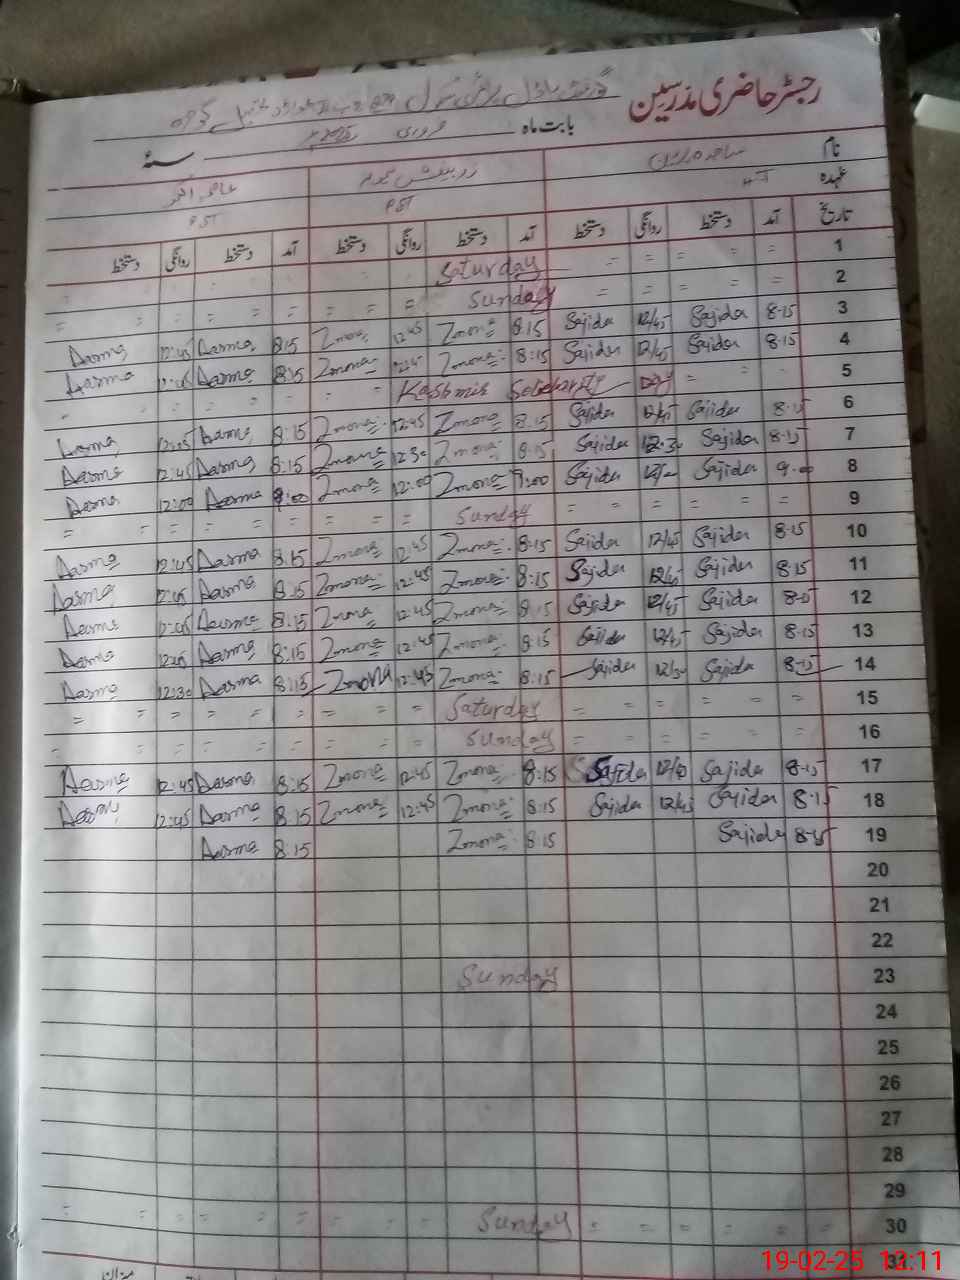 رجسٹر حاضری مدرسین
گورنمنٹ ماڈل پرائمری سکول
بابت ماہ فروری 2025 سنہ
نام ساجدہ پروین
عہدہ PST PST
تاریخ آمد دستخط روانگی دستخط آمد دستخط روانگی دستخط آمد دستخط روانگی دستخط
1 = = = = Saturday
2 = = = = Sunday = = = = = = = =
3 8-15 Sajida 12/45 Sajida 8:15 Zmona 12:45 Zmona 8:15 Aasma 12:45 Aasma
4 8-15 Sajida 12/45 Sajida 8:15 Zmona 12:45 Zmona 8:15 Aasma 12:45 Aasma
5 = = Kashmir Day = = = = = =
6 8-15 Sajida 12/45 Sajida 8:15 Zmona 12:45 Zmona 8:15 Aasma 12:45 Aasma
7 8-15 Sajida 12:30 Sajida 8:15 Zmona 12:30 Zmona 8:15 Aasma 12:45 Aasma
8 9-00 Sajida Sajida 9:00 Zmona 12:00 Zmona 9:00 Aasma 12:00 Aasma
9 = = = = Sunday = = = = = = =
10 8-15 Sajida 12/45 Sajida 8:15 Zmona 12:45 Zmona 8:15 Aasma 12:45 Aasma
11 8-15 Sajida 12/45 Sajida 8:15 Zmona 12:45 Zmona 8:15 Aasma 12:45 Aasma
12 8-15 Sajida 12/45 Sajida 8:15 Zmona 12:45 Zmona 8:15 Aasma 12:45 Aasma
13 8-15 Sajida 12/45 Sajida 8:15 Zmona 12:45 Zmona 8:15 Aasma 12:45 Aasma
14 8-15 Sajida 12/30 Sajida 8:15 Zmona 12:45 Zmona 8:15 Aasma 12:30 Aasma
15 = = = = Saturday = = = = = = =
16 = = = = Sunday = = = = = = =
17 8-15 Sajida Sajida 8:15 Zmona 12:45 Zmona 8:15 Aasma 12:45 Aasma
18 8-15 Sajida 12/45 Sajida 8:15 Zmona 12:45 Zmona 8:15 Aasma 12:45 Aasma
19 8-15 Sajida 8:15 Zmona 8:15 Aasma
20
21
22
23 Sunday
24
25
26
27
28
29
30 = = = = Sunday = = = = = = =
31
میزان
19-02-25 12:11